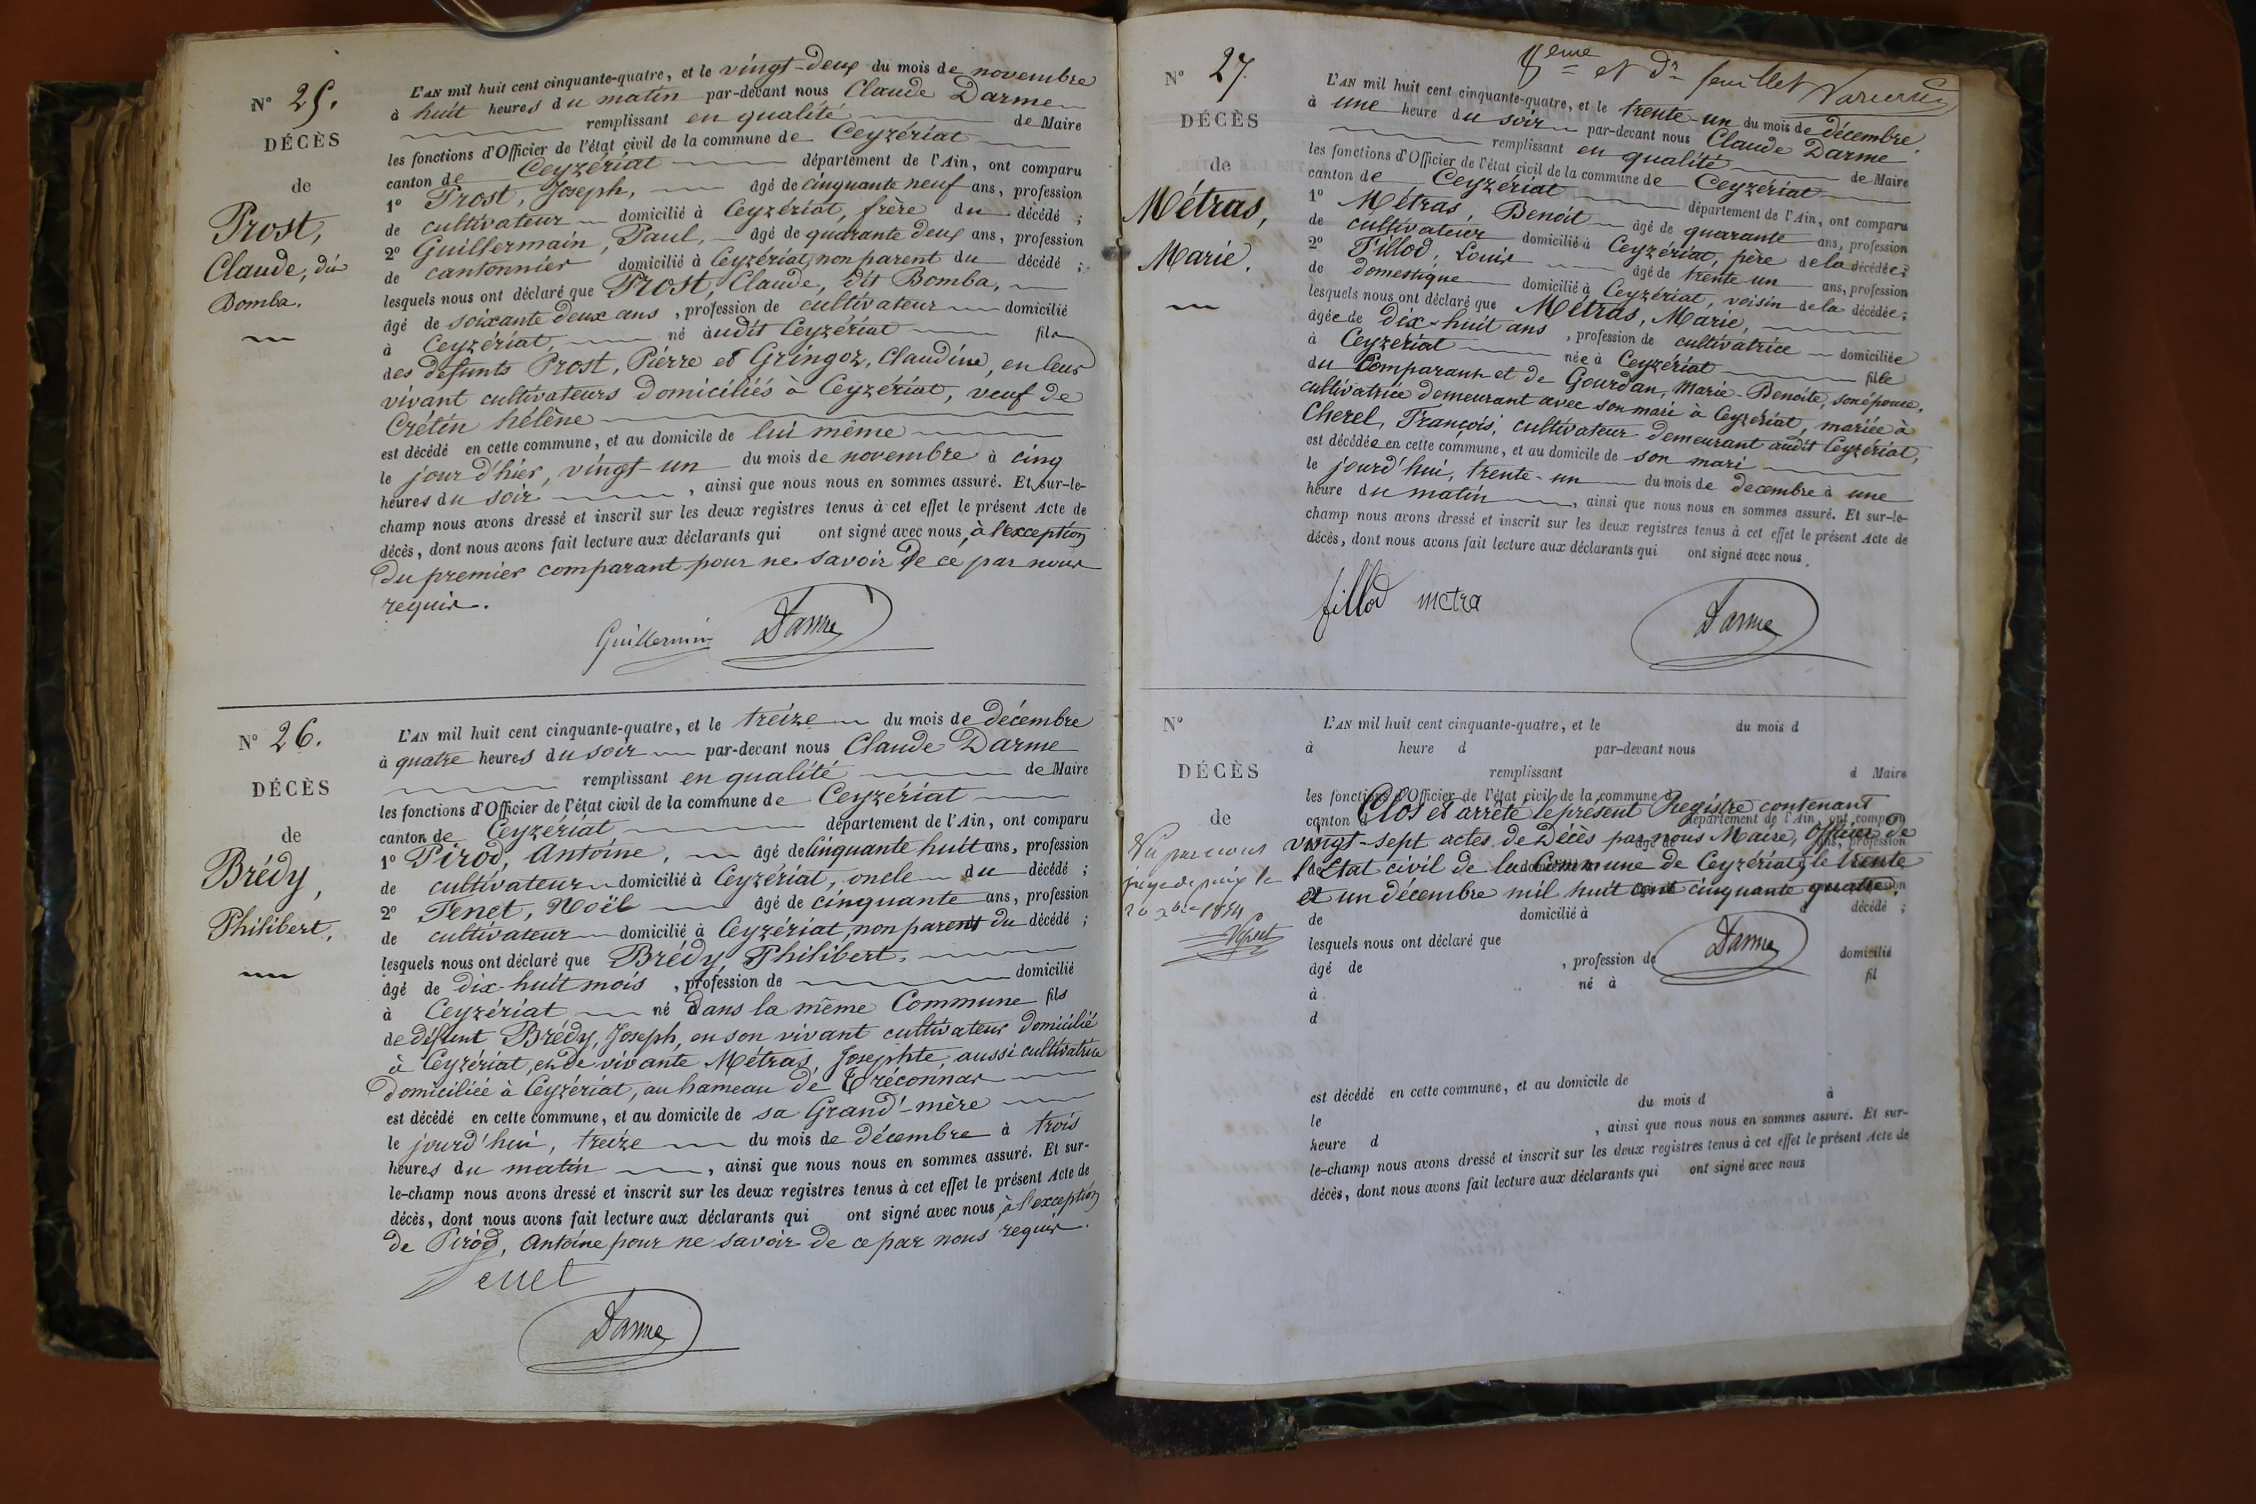 N° 25.
DÉCÈS
de
Prost,
Claude, dit
Bomba.
L'AN mil huit cent cinquante-quatre, et le vingt-deux du mois de novembre
à huit heures du matin par-devant nous Claude Darme
remplissant en qualité de Maire
les fonctions d'Officier de l'état civil de la commune de Ceyzériat
canton de Ceyzériat département de l'Ain, ont comparu
1° Prost, Joseph, âgé de cinquante neuf ans, profession
de cultivateur domicilié à Ceyzériat, frère du décédé ;
2° Guillermain, Paul, âgé de quarante deux ans, profession
de cantonnier domicilié à Ceyzériat, non parent du décédé ;
lesquels nous ont déclaré que Prost, Claude, dit Bomba,
âgé de soixante deux ans, profession de cultivateur domicilié
à Ceyzériat, né audit Ceyzériat fils
des défunts Prost, Pierre et Gringoz, Claudine, en leur
vivant cultivateurs domiciliés à Ceyzériat, veuf de
Crétin hélène
est décédé en cette commune, et au domicile de lui même
le jour d'hier, vingt-un du mois de novembre à cinq
heures du soir, ainsi que nous nous en sommes assuré. Et sur-le-
champ nous avons dressé et inscrit sur les deux registres tenus à cet effet le présent Acte de
décès, dont nous avons fait lecture aux déclarants qui ont signé avec nous, à l'exception
du premier comparant pour ne savoir de ce par nous
requis.
Guillermin Darme
N° 26.
DÉCÈS
de
Brédy,
Philibert.
L'AN mil huit cent cinquante-quatre, et le treize du mois de décembre
à quatre heures du soir par-devant nous Claude Darme
remplissant en qualité de Maire
les fonctions d'Officier de l'état civil de la commune de Ceyzériat
canton de Ceyzériat département de l'Ain, ont comparu
1° Pirod, Antoine, âgé de cinquante huit ans, profession
de cultivateur domicilié à Ceyzériat, oncle du décédé ;
2° Tenet, Noël âgé de cinquante ans, profession
de cultivateur domicilié à Ceyzériat, non parent du décédé ;
lesquels nous ont déclaré que Brédy Philibert,
âgé de dix-huit mois, profession de domicilié
à Ceyzériat né dans la même Commune fils
de défunt Brédy, Joseph, en son vivant cultivateur domicilié
à Ceyzériat, et de vivante Métras, Josephte, aussi cultivatrice
domiciliée à Ceyzériat, au hameau de Tréconnas
est décédé en cette commune, et au domicile de sa Grand'-mère
le jourd'hui, treize du mois de décembre à trois
heures du matin, ainsi que nous nous en sommes assuré. Et sur-
le-champ nous avons dressé et inscrit sur les deux registres tenus à cet effet le présent Acte de
décès, dont nous avons fait lecture aux déclarants qui ont signé avec nous, à l'exception
de Pirod, Antoine pour ne savoir de ce par nous requis.
Tenet
Darme
8eme et dr feuillet
N° 27.
DÉCÈS
de
Métras,
Marie.
L'AN mil huit cent cinquante-quatre, et le trente-un du mois de décembre,
à une heure du soir par-devant nous Claude Darme
remplissant en qualité de Maire
les fonctions d'Officier de l'état civil de la commune de Ceyzériat
canton de Ceyzériat département de l'Ain, ont comparu
1° Métras, Benoît âgé de quarante ans, profession
de cultivateur domicilié à Ceyzériat, père de la décédée ;
2° Fillod, Louis âgé de trente-un ans, profession
de domestique domicilié à Ceyzériat, voisin de la décédée ;
lesquels nous ont déclaré que Métras, Marie,
âgée de dix-huit ans, profession de cultivatrice domiciliée
à Ceyzériat née à Ceyzériat fille
du Comparant et de Gourdan, Marie-Benoîte, son épouse,
cultivatrice demeurant avec son mari à Ceyzériat, mariée à
Cherel, François, cultivateur demeurant audit Ceyzériat,
est décédée en cette commune, et au domicile de son mari
le jourd'hui, trente-un du mois de decembre à une
heure du matin, ainsi que nous nous en sommes assuré. Et sur-le-
champ nous avons dressé et inscrit sur les deux registres tenus à cet effet le présent Acte de
décès, dont nous avons fait lecture aux déclarants qui ont signé avec nous.
fillod metra Darme
N°
DÉCÈS
de
L'AN mil huit cent cinquante-quatre, et le du mois d
à heure d par-devant nous
remplissant d Maire
les fonctions d'Officier de l'état civil de la commune d
canton d département de l'Ain, ont comparu
Clos et arrêté le présent Registre contenant
vingt-sept actes de Décès par nous Maire, Officier de
l'Etat civil de la Commune de Ceyzériat, le trente
et un décembre mil huit cent cinquante quatre.
Vu par nous
juge de paix le
1854
Darme
de domicilié à décédé ;
lesquels nous ont déclaré que
âgé de , profession de domicilié
à né à fil
d
est décédé en cette commune, et au domicile de
le du mois d à
heure d , ainsi que nous nous en sommes assuré. Et sur-
le-champ nous avons dressé et inscrit sur les deux registres tenus à cet effet le présent Acte de
décès, dont nous avons fait lecture aux déclarants qui ont signé avec nous